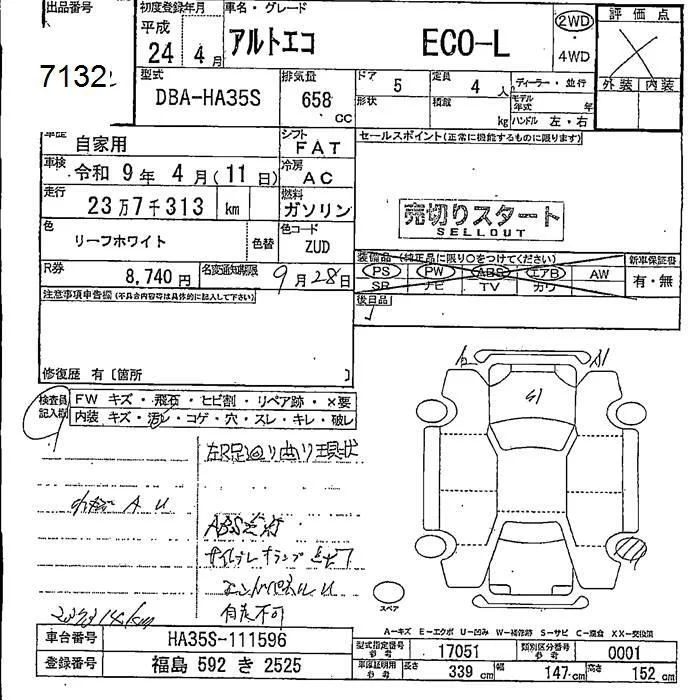 出品番号
7132
初度登録年月
平成
24年 4月
車名・グレード
アルトエコ ECO-L
2WD
・
4WD
評価点
外装 内装
型式
DBA-HA35S
排気量
658
CC
ドア 5
定員 4人
ディーラー・並行
形状
積載 kg
モデル年式 年
ハンドル 左・右
車歴
自家用
シフト
FAT
セールスポイント(正常に機能するものに限ります)
車検
令和 9年 4月(11日)
冷房
AC
走行
23万7千313 km
燃料
ガソリン
売切りスタート
SELLOUT
色
リーフホワイト
色替
色コード
ZUD
装備品(純正品に限り○をつけてください)
PS PW ABS エアB AW
SR ナビ TV カワ
新車保証書
有・無
R券
8,740円
名変通知期限
9月28日
後日品
注意事項申告欄(不具合内容等は具体的に記入して下さい)
修復歴 有〔箇所 〕
検査員記入欄
FW キズ・飛石・ヒビ割・リペア跡・×要
内装 キズ・汚レ・コゲ・穴・スレ・キレ・破レ
左R足廻り曲り現状
A U
ABS
自走不可
スペア
A-キズ E-エクボ U-凹み W-補修跡 S-サビ C-腐食 XX-交換済
車台番号
HA35S-111596
型式指定番号
参考
17051
類別区分番号
参考
0001
登録番号
福島 592 き 2525
車庫証明用
参考
長さ 339cm
幅 147cm
高さ 152cm